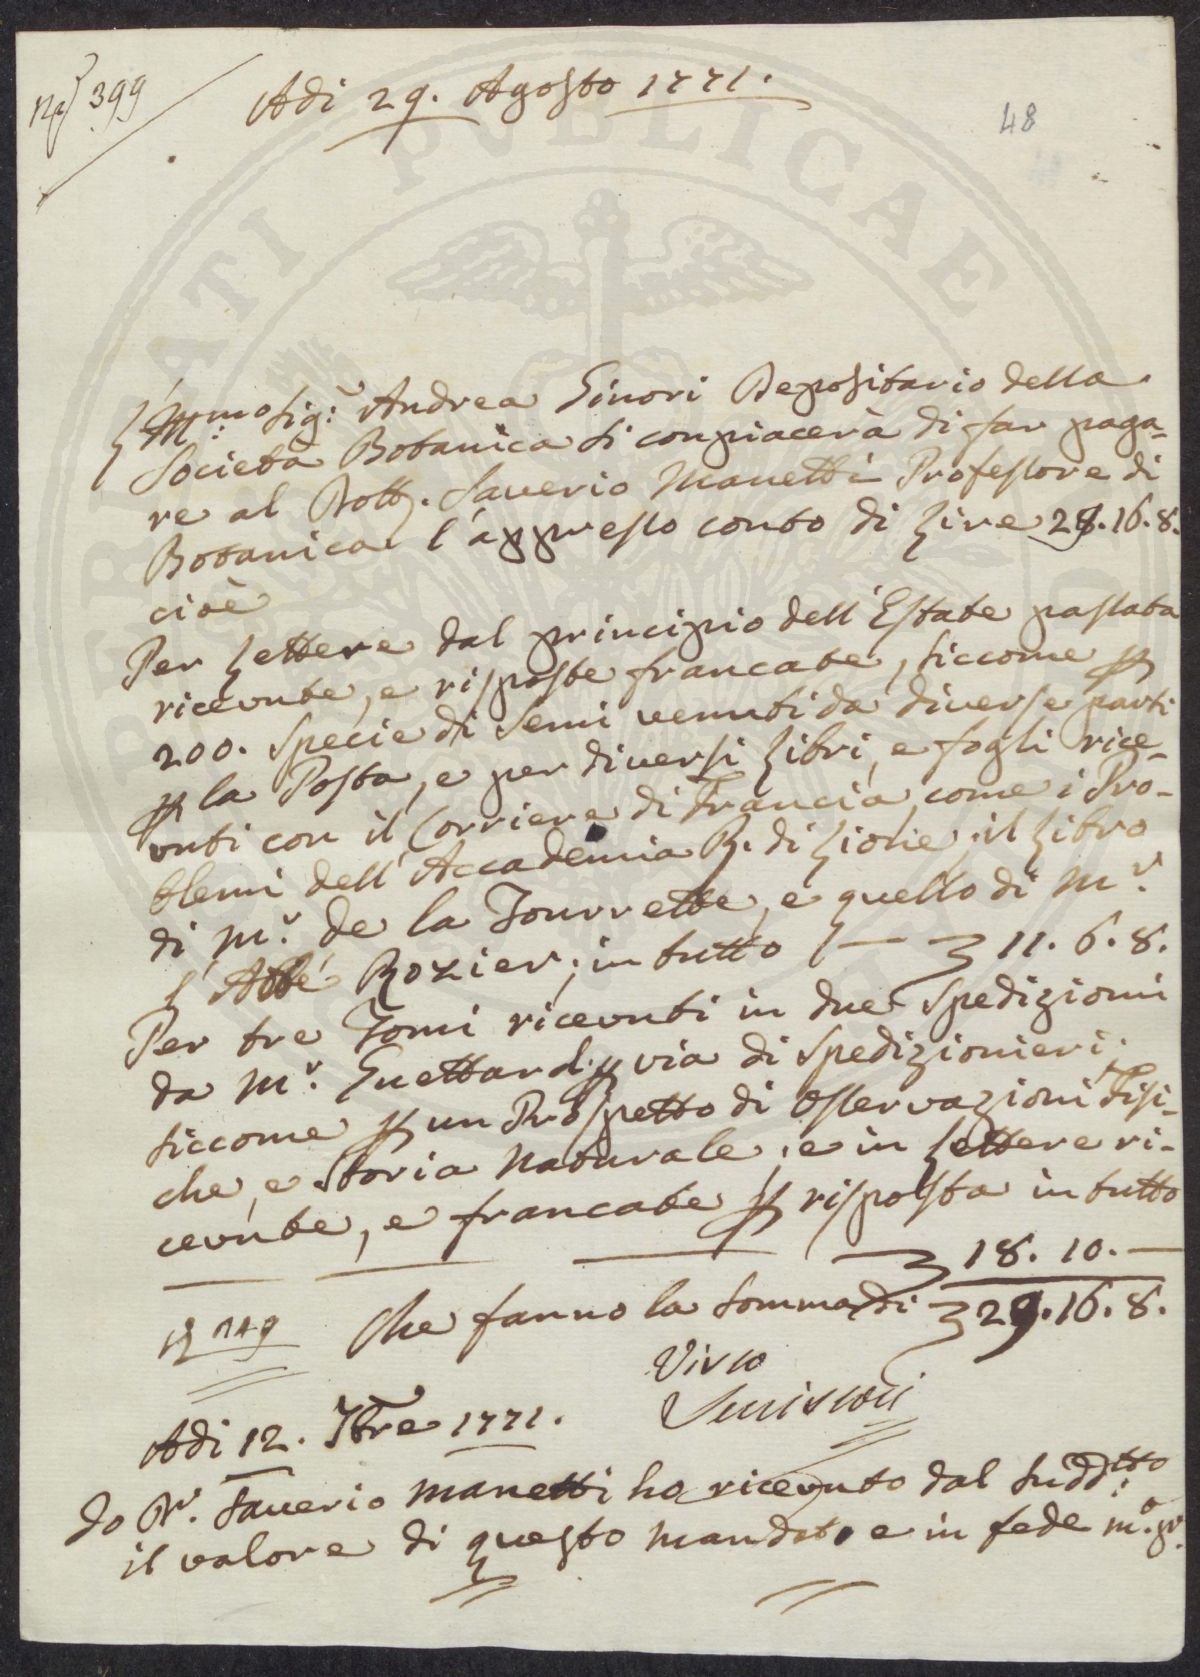 N° 399
Adi 29. Agosto 1771.
48
Ill:mo Sig:r Andrea Ginori Depositario della
Società Botanica si conpiacerà di far paga-
re al Dott. Saverio Manetti Professore di
Botanica l'appresso conto di Lire 29.16.8.
cioè
Per Lettere dal principio dell'Estate passata
ricevute, e risposte francate, siccome p
200. Specie di Semi venuti da diverse parti
p la Posta, e per diversi Libri, e fogli rice-
vuti con il Corriere di Francia, come i Pro-
blemi dell'Accademia R. di Lione, il Libro
di M.r de la Tourrette, e quello di M.r
l'Abbé Rozier; in tutto — 11. 6. 8.
Per tre Tomi ricevuti in due Spedizioni
da M.r Guettard p via di Spedizionieri;
siccome p un Prospetto di Osservazioni Fisi-
che, e Storia Naturale, e in Lettere ri-
cevute, e francate p risposta in tutto
18. 10. —
149 Che fanno la somma di 29.16.8.
Visto
Adi 12. 7bre 1771.
Io D.r Saverio Manetti ho ricevuto dal sudd:tto
il valore di questo mandato e in fede m.o p.a